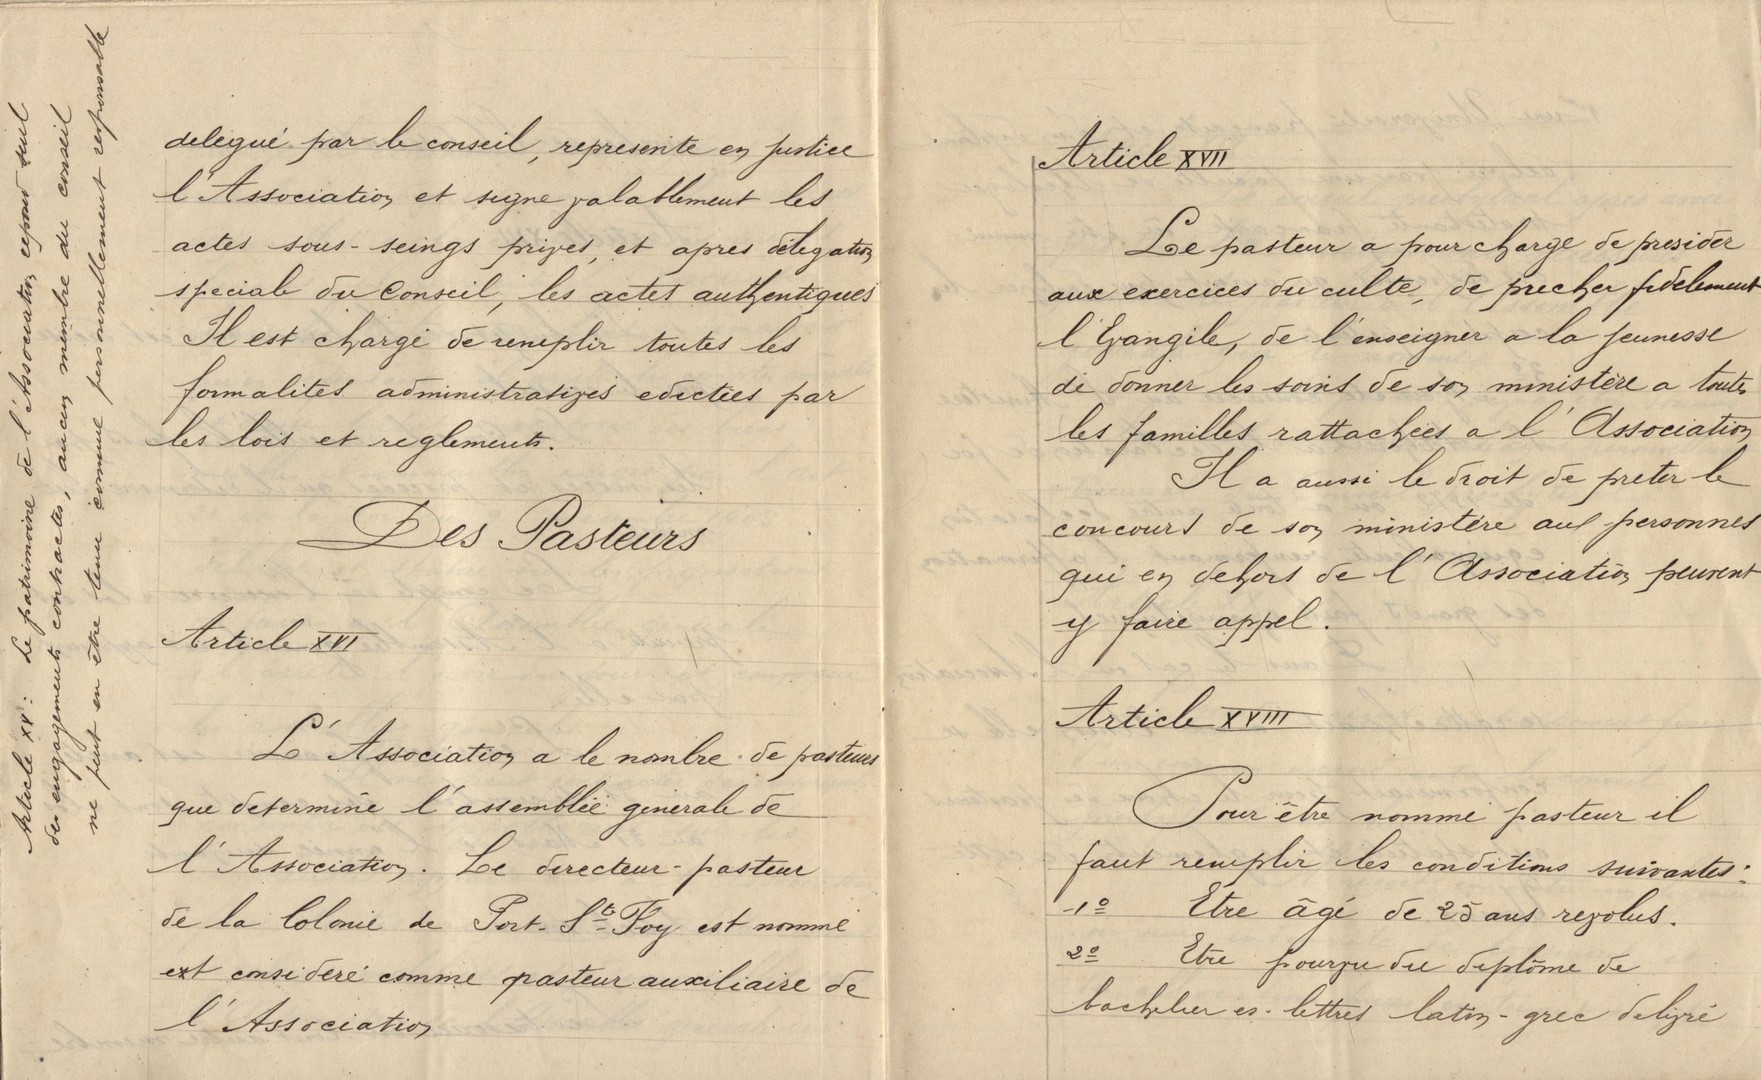 Article XV : Le patrimoine de l'Association repond seul
des engagements contractes, aucun membre du conseil
ne peut en être tenu comme personnellement responsable
delegué par le conseil, represente en justice
l'Association et signe valablement les
actes sous-seings privés, et apres délegation
speciale du Conseil, les actes authentiques
Il est chargé de remplir toutes les
formalités administratives edictées par
les lois et reglements.
Des Pasteurs
Article XVI
L'Association a le nombre de pasteurs
que determine l'assemblée génerale de
l'Association. Le directeur-pasteur
de la Colonie de Port-Ste-Foy est nommé
et consideré comme pasteur auxiliaire de
l'Association
Article XVII
Le pasteur a pour charge de presider
aux exercices du culte, de precher fidelement
l'Evangile, de l'enseigner a la jeunesse
de donner les soins de son ministère a toutes
les familles rattachées a l'Association
Il a aussi le droit de preter le
concours de son ministère aux personnes
qui en dehors de l'Association peuvent
y faire appel.
Article XVIII
Pour être nommé pasteur il
faut remplir les conditions suivantes :
1º Etre âgé de 25 ans revolus.
2º Etre pourvu du diplôme de
bachelier es-lettres latin-grec delivré